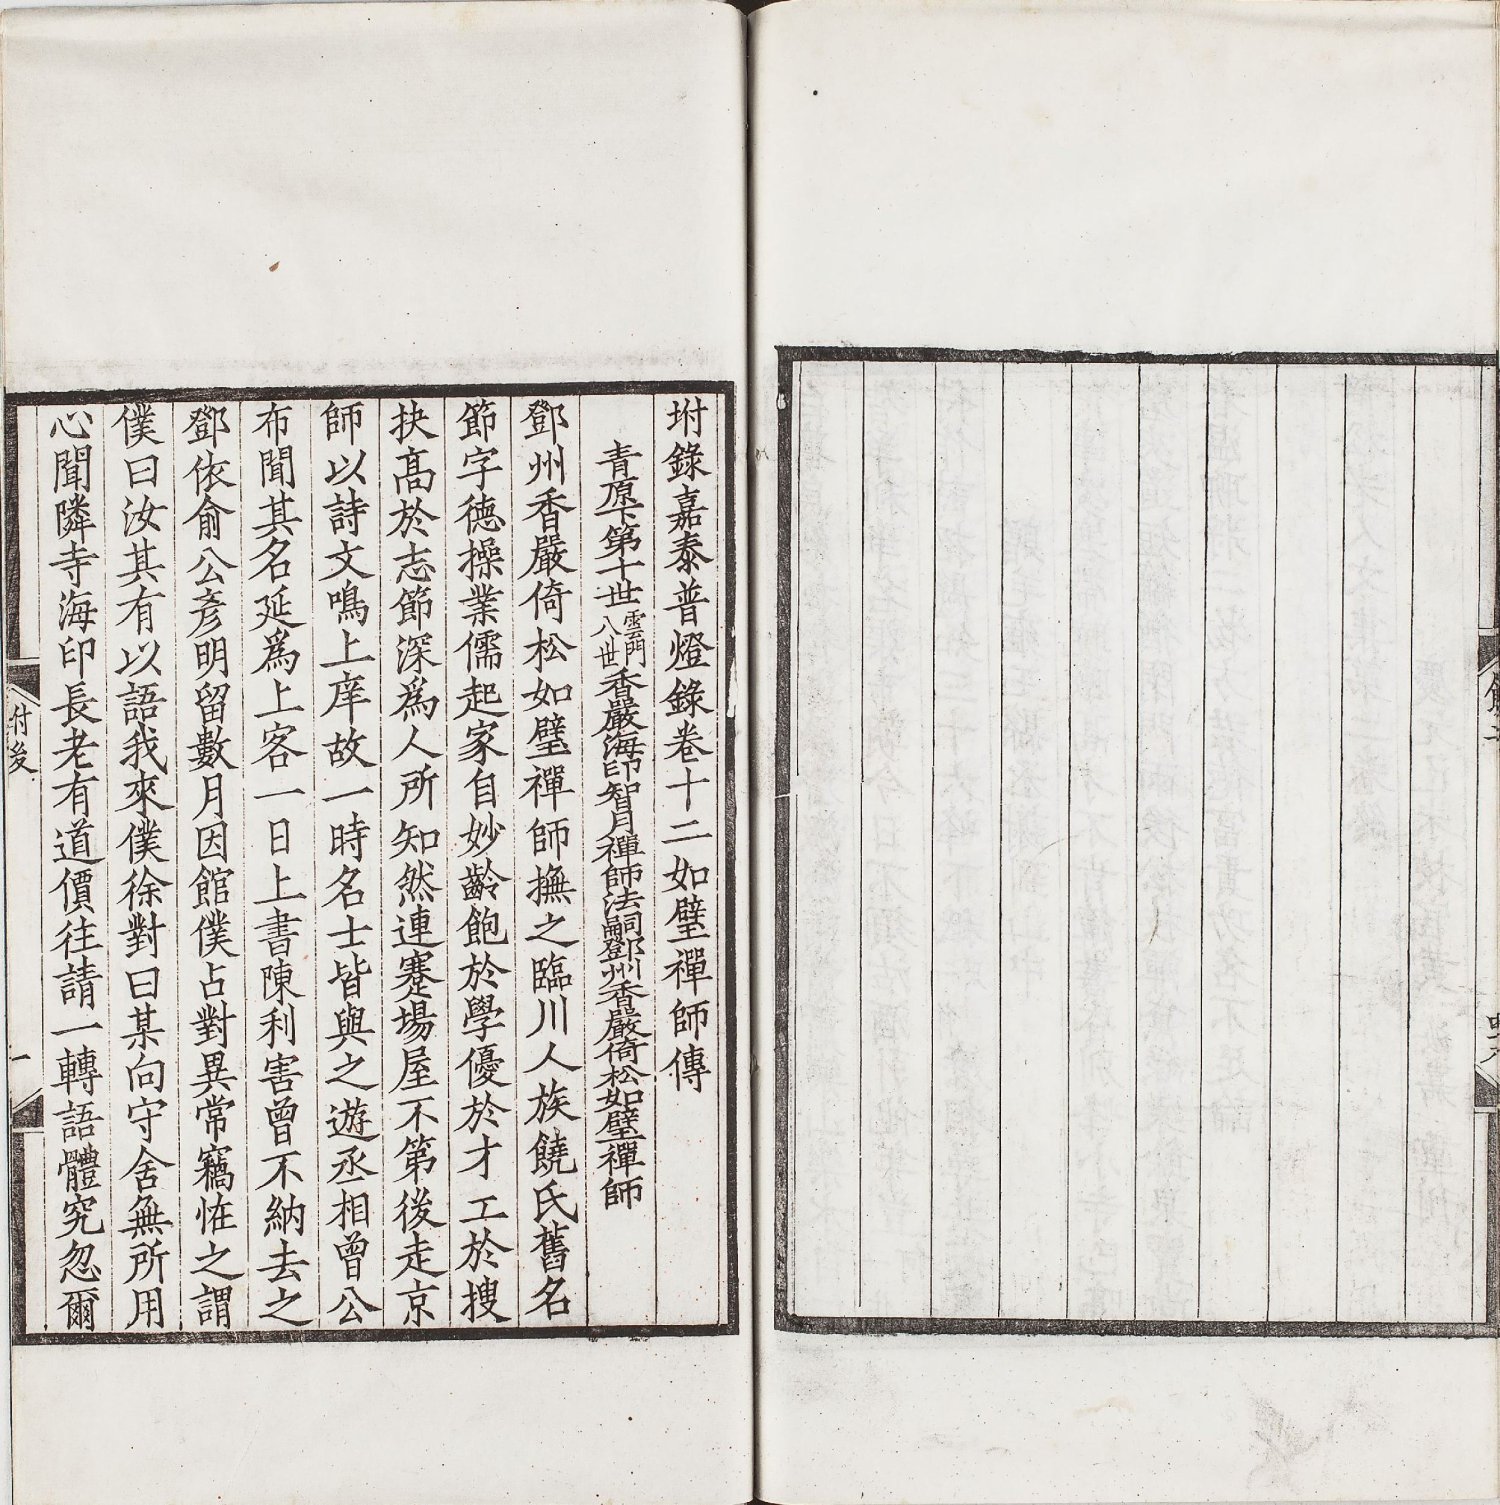 坿錄嘉泰普燈錄卷十二如璧禪師傳
青原下第十世雲門八世香嚴海印智月禪師法嗣鄧州香嚴倚松如璧禪師
鄧州香嚴倚松如璧禪師撫之臨川人族饒氏舊名
節字德操業儒起家自妙齡飽於學優於才工於搜
抉高於志節深爲人所知然連蹇場屋不第後走京
師以詩文鳴上庠故一時名士皆與之遊丞相曾公
布聞其名延爲上客一日上書陳利害曾不納去之
鄧依俞公彥明留數月因館僕占對異常竊恠之謂
僕曰汝其有以語我來僕徐對曰某向守舍無所用
心聞隣寺海印長老有道價往請一轉語體究忽爾
付後
一